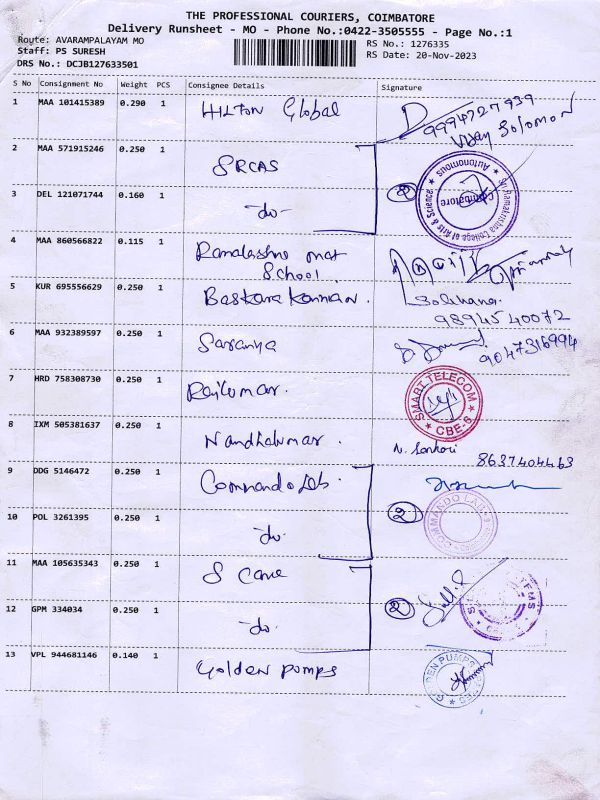 THE PROFESSIONAL COURIERS, COIMBATORE
Delivery Runsheet - MO - Phone No.:0422-3505555 - Page No.:1
Route: AVARAMPALAYAM MO
RS No.: 1276335
Staff: PS SURESH
RS Date: 20-Nov-2023
DRS No.: DCJB127633501
S No Consignment No Weight PCS Consignee Details Signature
1 MAA 101415389 0.290 1 Hilton Global 9994727939
Vijay Solomon
2 MAA 571915246 0.250 1 SRCAS
Sri Ramakrishna College of Arts & Science ★ Autonomous ★ Coimbatore
3 DEL 121071744 0.160 1 -do- 2
4 MAA 860566822 0.115 1 Ramalakshmi mat
School
5 KUR 695556629 0.250 1 Baskara Kannan.
9894540072
6 MAA 932389597 0.250 1 Saranya 9047316994
7 HRD 758308730 0.250 1 Rajkumar. SMART TELECOM ★ CBE-6 ★
8 IXM 505381637 0.250 1 Nandhakumar. 8637404463
9 DDG 5146472 0.250 1 Commando Lab.
10 POL 3261395 0.250 1 -do- 2 COMMANDO LAB
11 MAA 105635343 0.250 1 S Cane
12 GPM 334034 0.250 1 -do- 2
13 VPL 944681146 0.140 1 Golden Pumps GOLDEN PUMPS